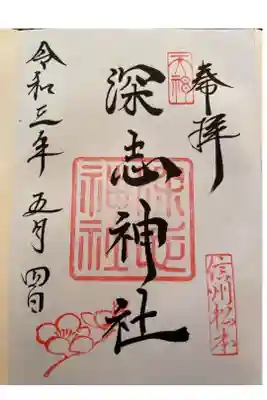 奉拝
天神
深志神社
深志
神社
信州松本
令和三年 五月 四日